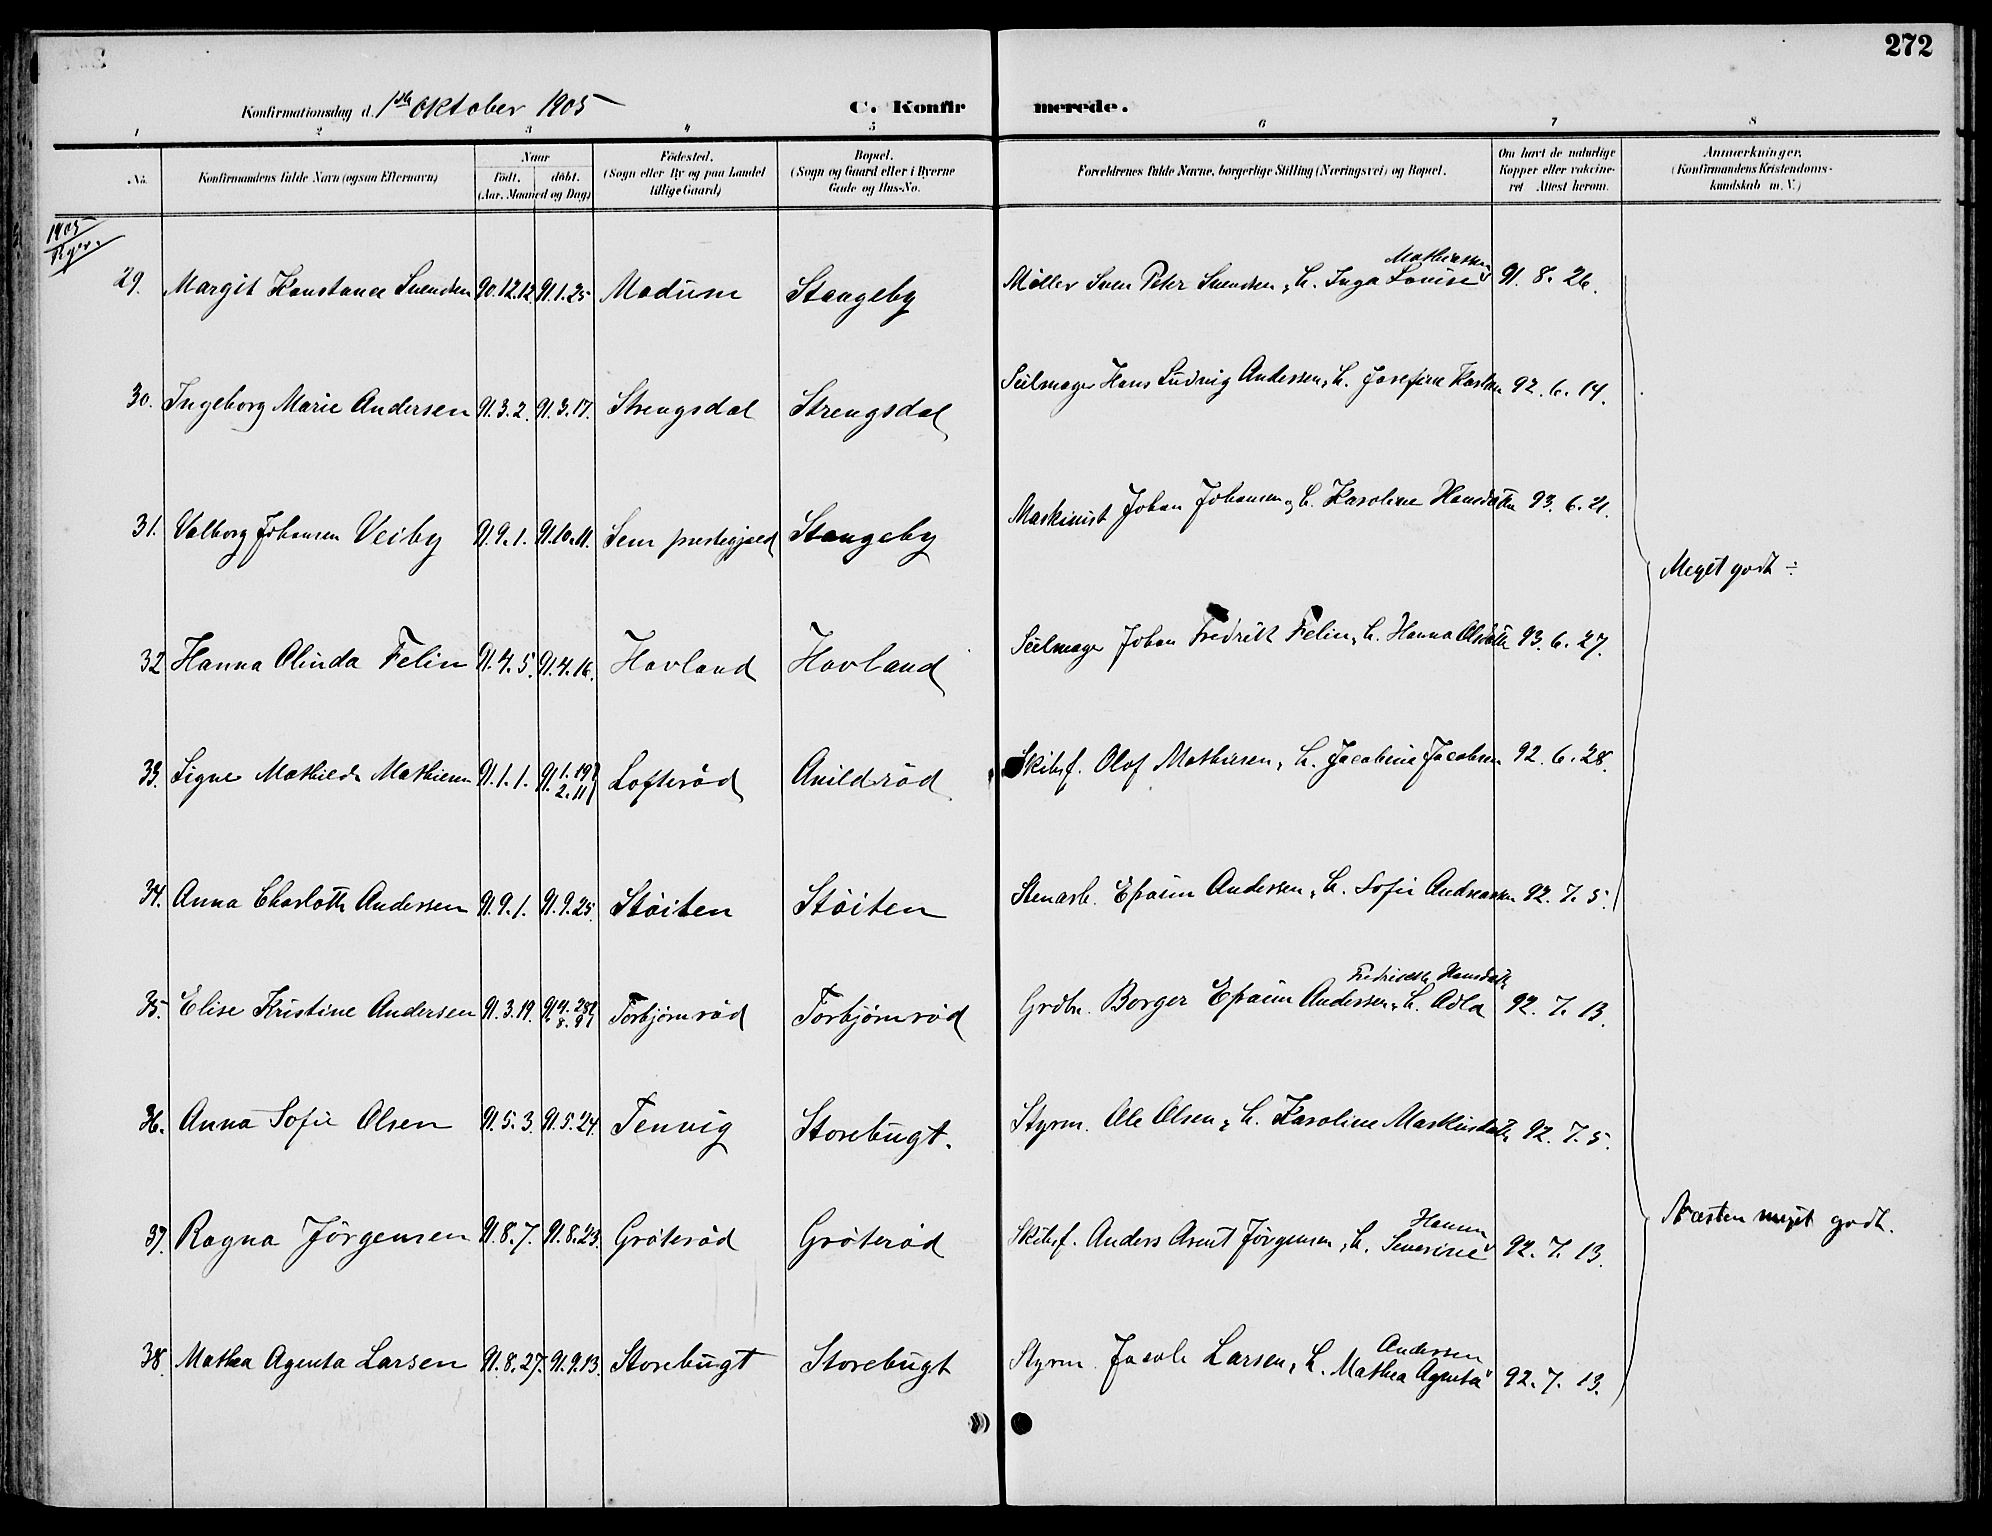 272
Konfirmationsdag d. 1ste Oktober 1905
C. Konfirmerede.
1 2 3 4 5 6 7 8
No.
Konfirmandens fulde Navn (ogsaa Efternavn)
Naar
födt. döbt.
(Aar, Maaned og Dag)
Födested.
(Sogn eller By og paa Landet
tillige Gaard)
Bopæl.
(Sogn og Gaard eller i Byerne
Gade og Hus-No.
Forældrenes fulde Navne, borgerlige Stilling (Næringsvei) og Bopæl.
Om havt de naturlige
Kopper eller vakcine-
ret Attest herom.
Anmærkninger.
(Konfirmandens Kristendoms-
kundskab m. V.)
1905
Mathiassen
29. Margit Konstance Svendsen 90.12.12. 91.1.25 Modum Stangeby Møller Sven Peter Svendsen, h. Inga Lovise 91. 8. 26.
30. Ingeborg Marie Andersen 91.3.2. 91.3.17. Strengsdal Strengsdal Seilmager Hans Ludvig Andersen, h. Josefine Karlsen 92. 6. 14.
31. Valborg Johansen Veiby 91.9.1. 91.10.11. Sem prestegjæld Stangeby Maskinist Johan Johansen, h. Karoline Hansdatter 93. 6. 21.
Meget godt ÷
32 Hanna Olinda Felin 91.4.5. 91.4.16. Havland Havland Seilmager Johan Fredrik Felin, h. Hanna Olsdatter 93. 6. 27.
33. Signe Mathilde Mathisen 91.1.1. 91. 1.19 2.11 Lofterød Avildrød Skibsf. Olof Mathisen, h. Jacobine Jacobsen 92. 6. 28.
34. Anna Charlotte Andersen 91.9.1. 91.9.25. Støiten Støiten Stenarb. Efraim Andersen, h. Sofie Andreassen 92. 7. 5.
Fredrikke Hansdatter
35. Elise Kristine Andersen 91.3.19. 91. 4.28 8.9 Torbjørnrød Torbjørnrød Grdbr. Borger Efraim Andersen, h. Adla 92. 7. 13.
36. Anna Sofie Olsen 91.5.3. 91.5.24. Tenvig Storebugt. Styrm. Ole Olsen, h. Karoline 92. 7. 5.
Næsten meget godt.
Hansen
37. Ragna Jørgensen 91.8.7. 91.8.23. Grøterød Grøterød Skibsf. Anders Arent Jørgensen, h. Severine 92. 7. 13.
Andersen
38. Mathea Agenta Larsen 91.8.27. 91.9.13. Storebugt Storebugt Styrm. Jacob Larsen, h. Mathea Agenta 92. 7. 13.